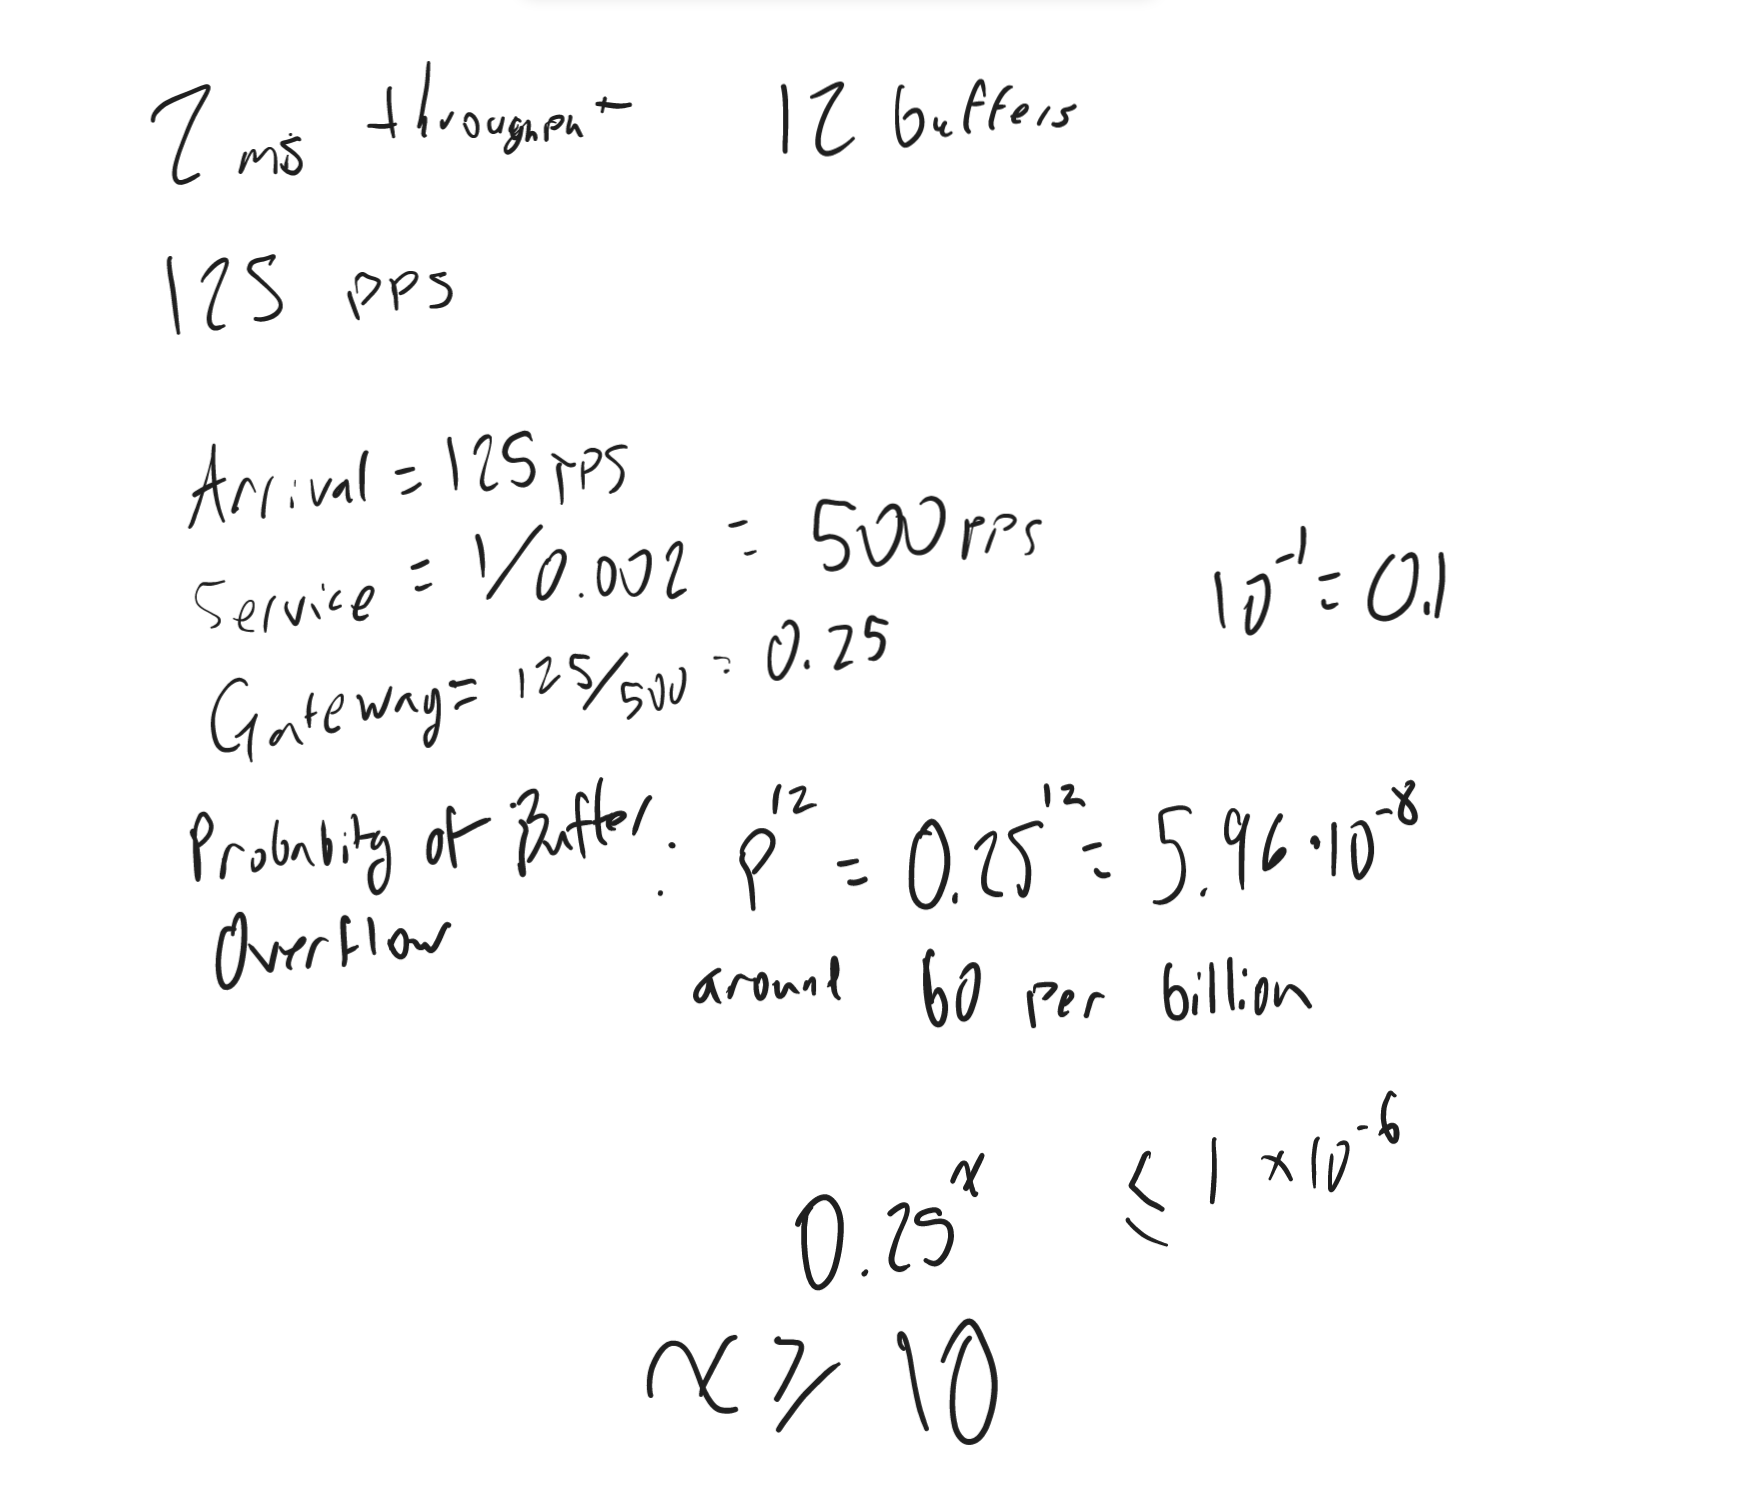 2 ms throughput 12 buffers
125 pps
Arrival = 125 pps
Service = 1/0.002 = 500 pps
10^-1 = 0.1
Gateway = 125/500 = 0.25
Probability of Buffer Overflow : p^12 = 0.25^12 = 5.96 · 10^-8
around 60 per billion
0.25^x ≤ 1 × 10^-6
x ≥ 10